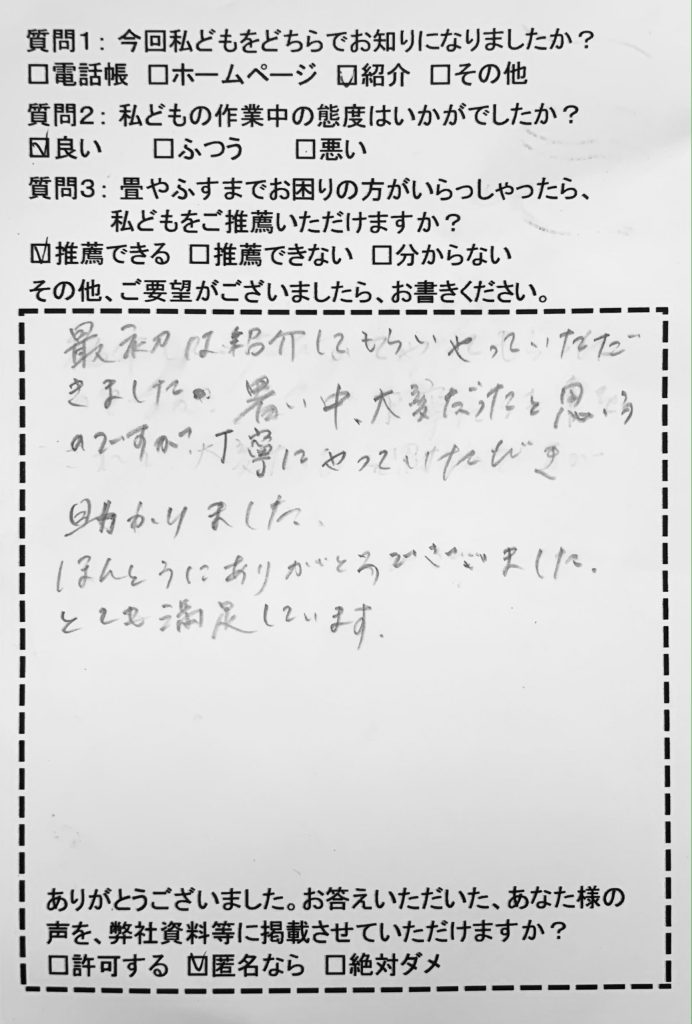 質問1：今回私どもをどちらでお知りになりましたか？
□電話帳 □ホームページ ☑紹介 □その他
質問2：私どもの作業中の態度はいかがでしたか？
☑良い □ふつう □悪い
質問3：畳やふすまでお困りの方がいらっしゃったら、
私どもをご推薦いただけますか？
☑推薦できる □推薦できない □分からない
その他、ご要望がございましたら、お書きください。
最初は紹介してもらいやっていただだ
きました。暑い中、大変だったと思いう
のですが、丁寧にやっていただき
助かりました。
ほんとうにありがとうございました。
とても満足しています。
ありがとうございました。お答えいただいた、あなた様の
声を、弊社資料等に掲載させていただけますか？
□許可する ☑匿名なら □絶対ダメ